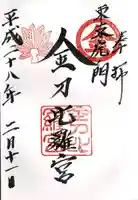 奉拝
東京虎ノ門
金刀比羅宮
平成二十八年
二月十一日